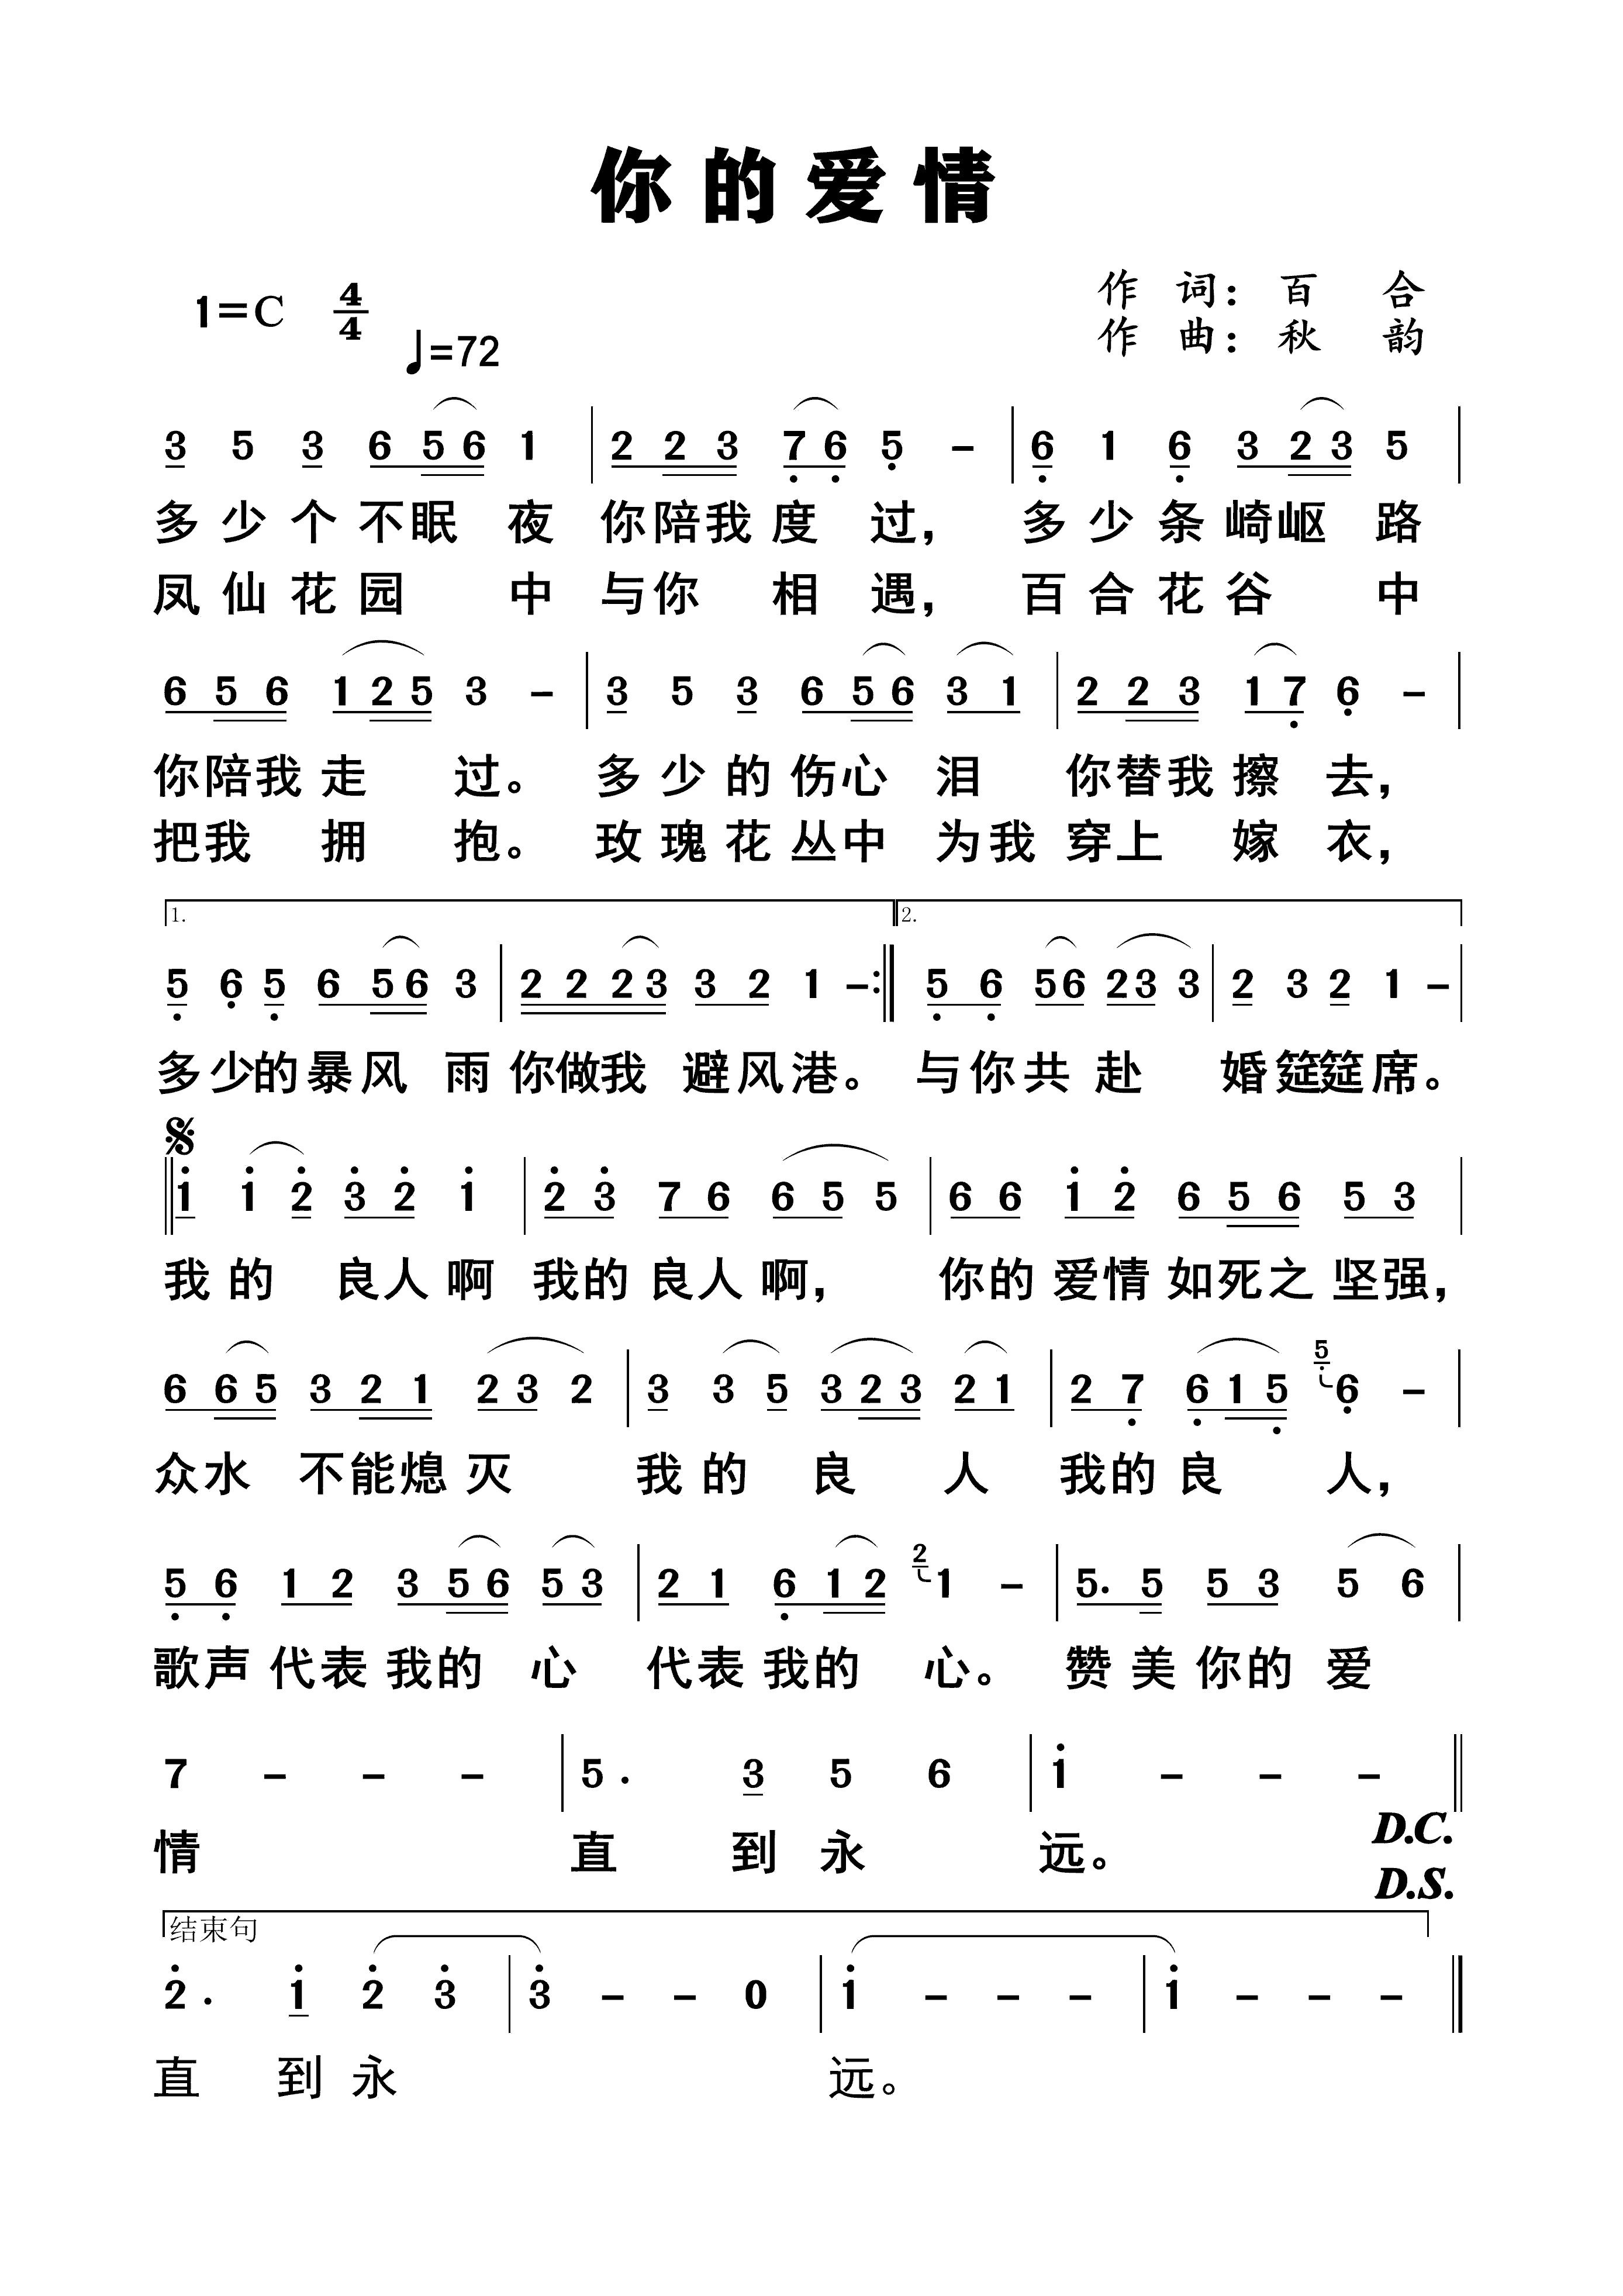 你的爱情
1=C 4/4
♩=72
作 词：百 合
作 曲：秋 韵
3 5 3 6 5 6 1 | 2 2 3 7 6 5 – | 6 1 6 3 2 3 5 |
多少个不眠 夜 你陪我度 过， 多少条崎岖 路
凤仙花园 中 与你 相 遇， 百合花谷 中
6 5 6 1 2 5 3 – | 3 5 3 6 5 6 3 1 | 2 2 3 1 7 6 – |
你陪我走 过。 多少的伤心 泪 你替我擦 去，
把我 拥 抱。 玫瑰花丛中 为我 穿上 嫁 衣，
1. 2.
5 6 5 6 5 6 3 | 2 2 2 3 3 2 1 – :‖ 5 6 5 6 2 3 3 | 2 3 2 1 – |
多少的暴风 雨 你做我 避风港。 与你共赴 婚筵筵席。
‖ 1 1 2 3 2 1 | 2 3 7 6 6 5 5 | 6 6 1 2 6 5 6 5 3 |
我的 良人啊 我的良人啊， 你的爱情如死之坚强，
6 6 5 3 2 1 2 3 2 | 3 3 5 3 2 3 2 1 | 2 7 6 1 5 5 6 – |
众水 不能熄灭 我的 良 人 我的良 人，
5 6 1 2 3 5 6 5 3 | 2 1 6 1 2 2 1 – | 5. 5 5 3 5 6 |
歌声代表我的 心 代表我的 心。 赞美你的爱
7 – – – | 5. 3 5 6 | 1 – – – ‖
情 直 到永 远。
D.C.
D.S.
结束句
2. 1 2 3 | 3 – – 0 | 1 – – – | 1 – – – ‖
直 到永 远。